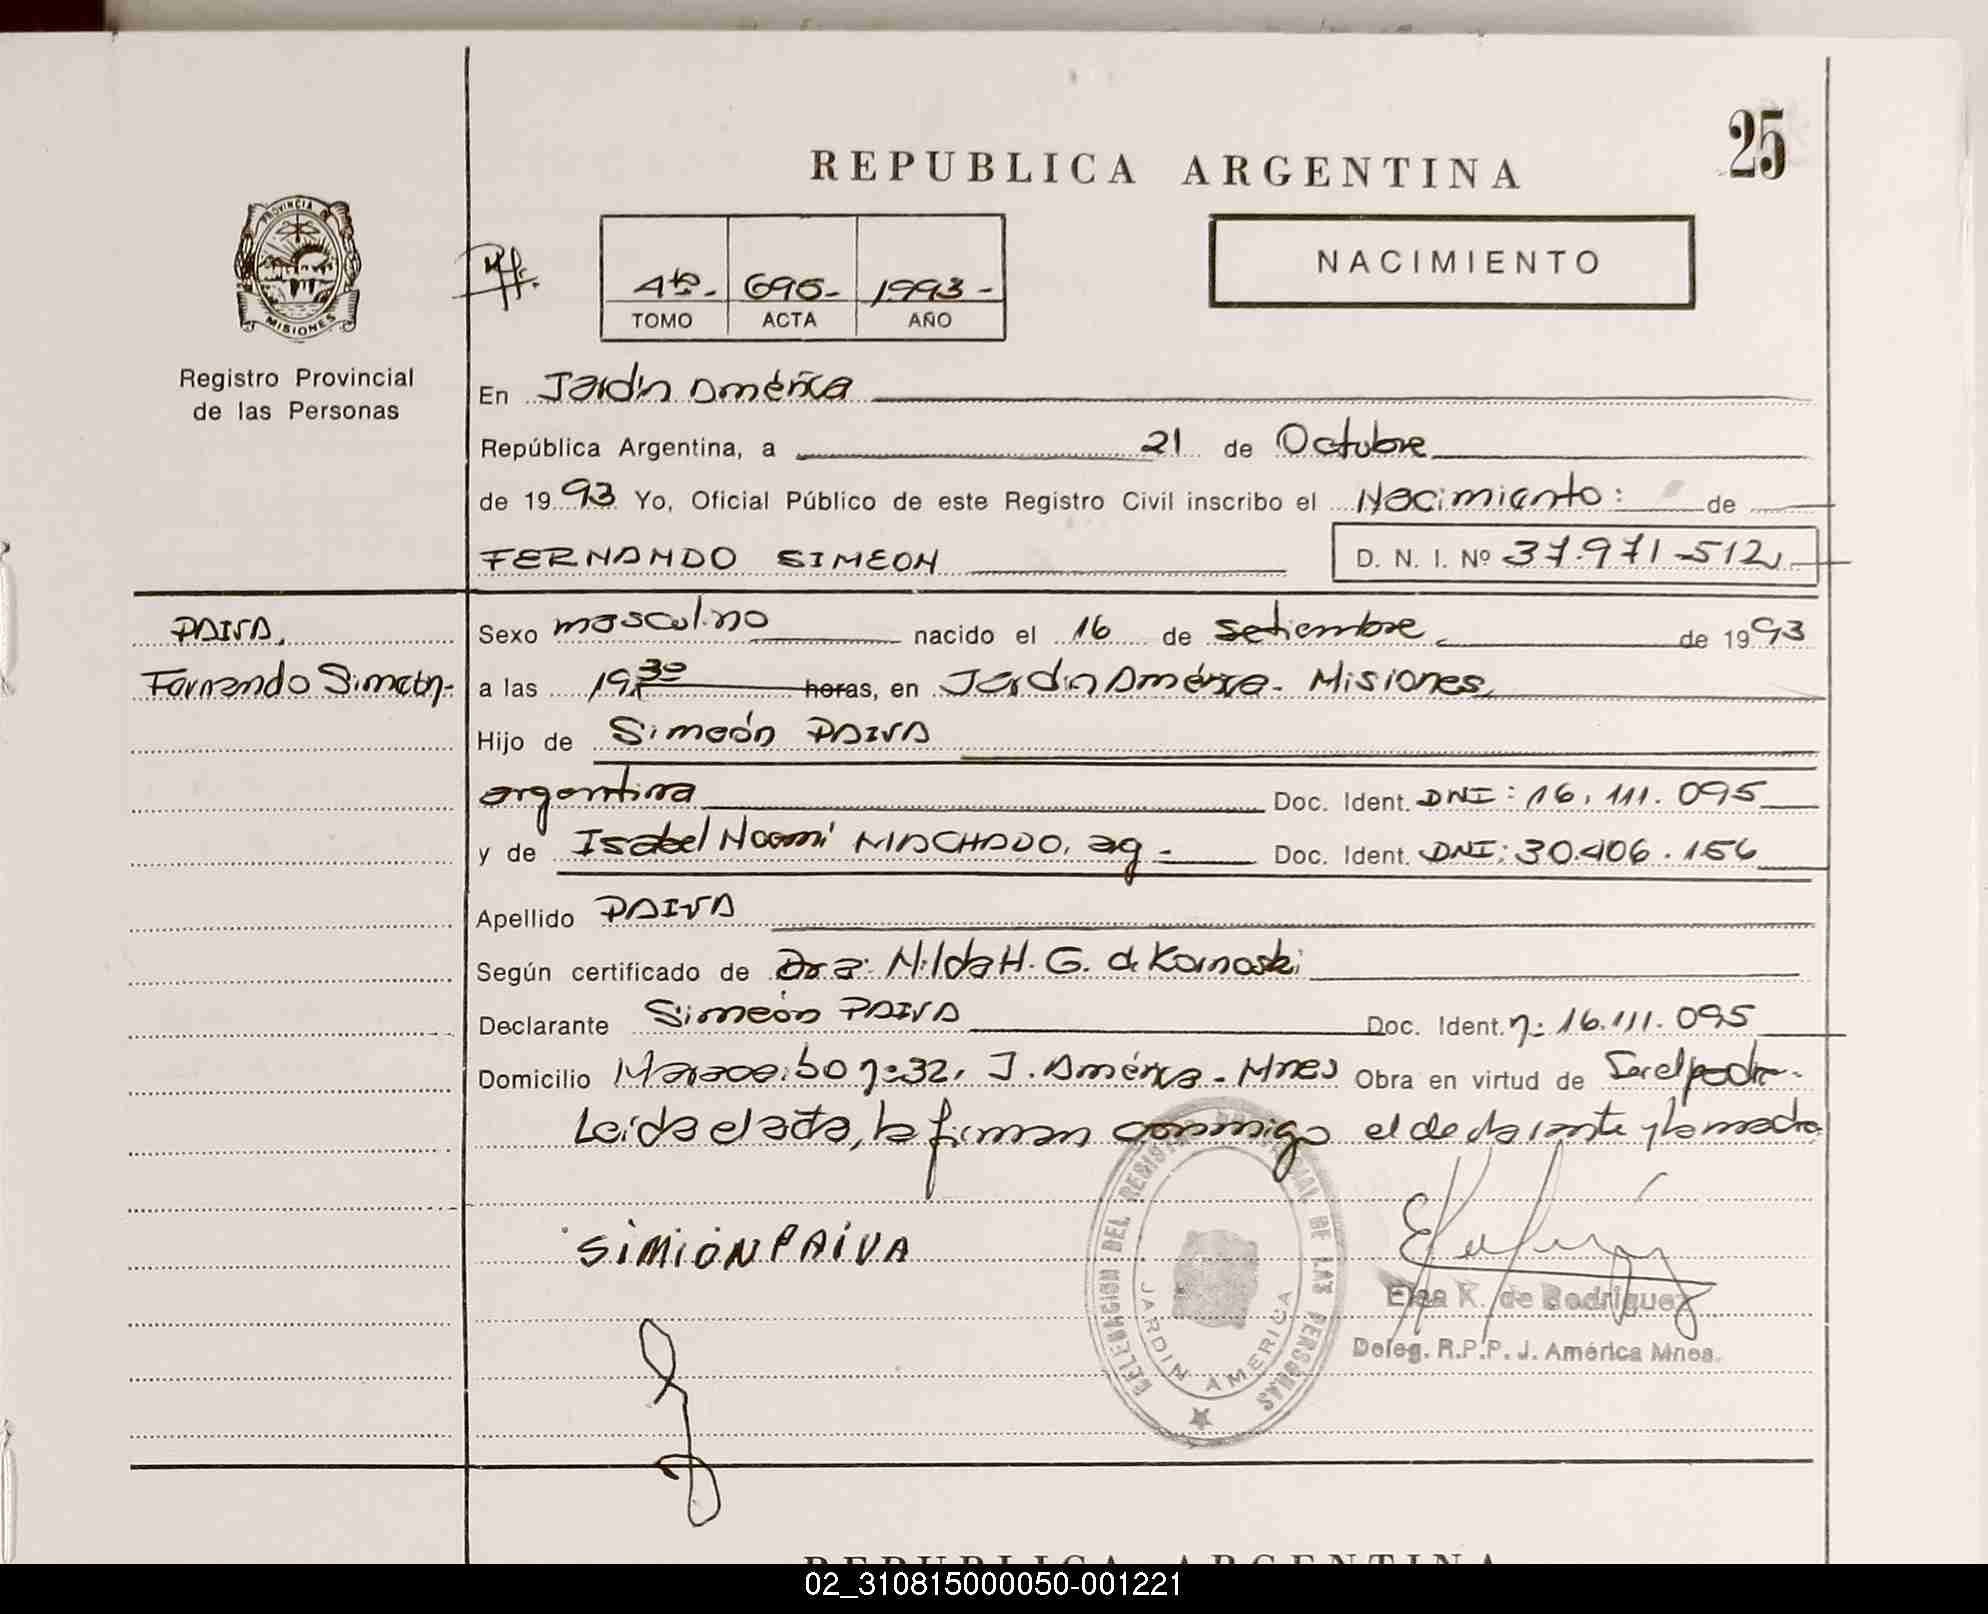 25
REPUBLICA ARGENTINA
PROVINCIA DE
MISIONES
Registro Provincial
de las Personas
4to.- 695- 1993-
TOMO ACTA AÑO
NACIMIENTO
En Jardín América
República Argentina, a 21 de Octubre
de 1993 Yo, Oficial Público de este Registro Civil inscribo el Nacimiento: de
FERNANDO SIMEON D. N. I. Nº 37.971-512
PAIVA,
Fernando Simeón.-
Sexo masculino nacido el 16 de setiembre de 1993
a las 19,30 horas, en Jardín América- Misiones,
Hijo de Simeón PAIVA
argentina Doc. Ident. DNI: 16.111.095
y de Isabel Noemí MACHADO, ag- Doc. Ident. DNI: 30.406.156
Apellido PAIVA
Según certificado de Dra: Nilda H. G. de Kornoski
Declarante Simeón PAIVA Doc. Ident. n: 16.111.095
Domicilio Maracaibo n:32, J. América- Mnes Obra en virtud de Ser el padre.-
Leída el acta, la firman conmigo el declarante y la madre
SiMiON PAiVA
DELEGACION DEL REGISTRO PROVINCIAL DE LAS PERSONAS
JARDIN AMERICA
Elsa K. de Rodriguez
Deleg. R.P.P. J. América Mnes.
REPUBLICA ARGENTINA
02_310815000050-001221